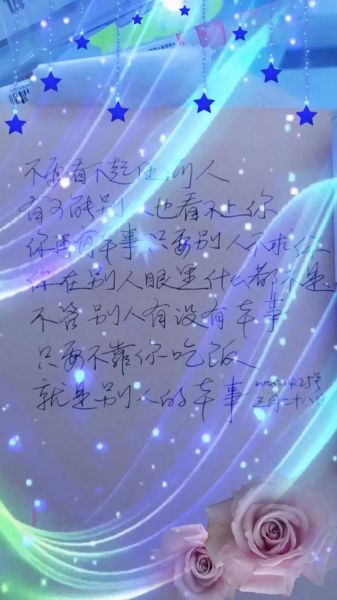 不要看不起人
有可能别人也看不上你
你再有本事只要别人不求你
你在别人眼里什么都不是
不管别人有没有本事
只要不靠你吃饭
就是别人的本事
三月二十八